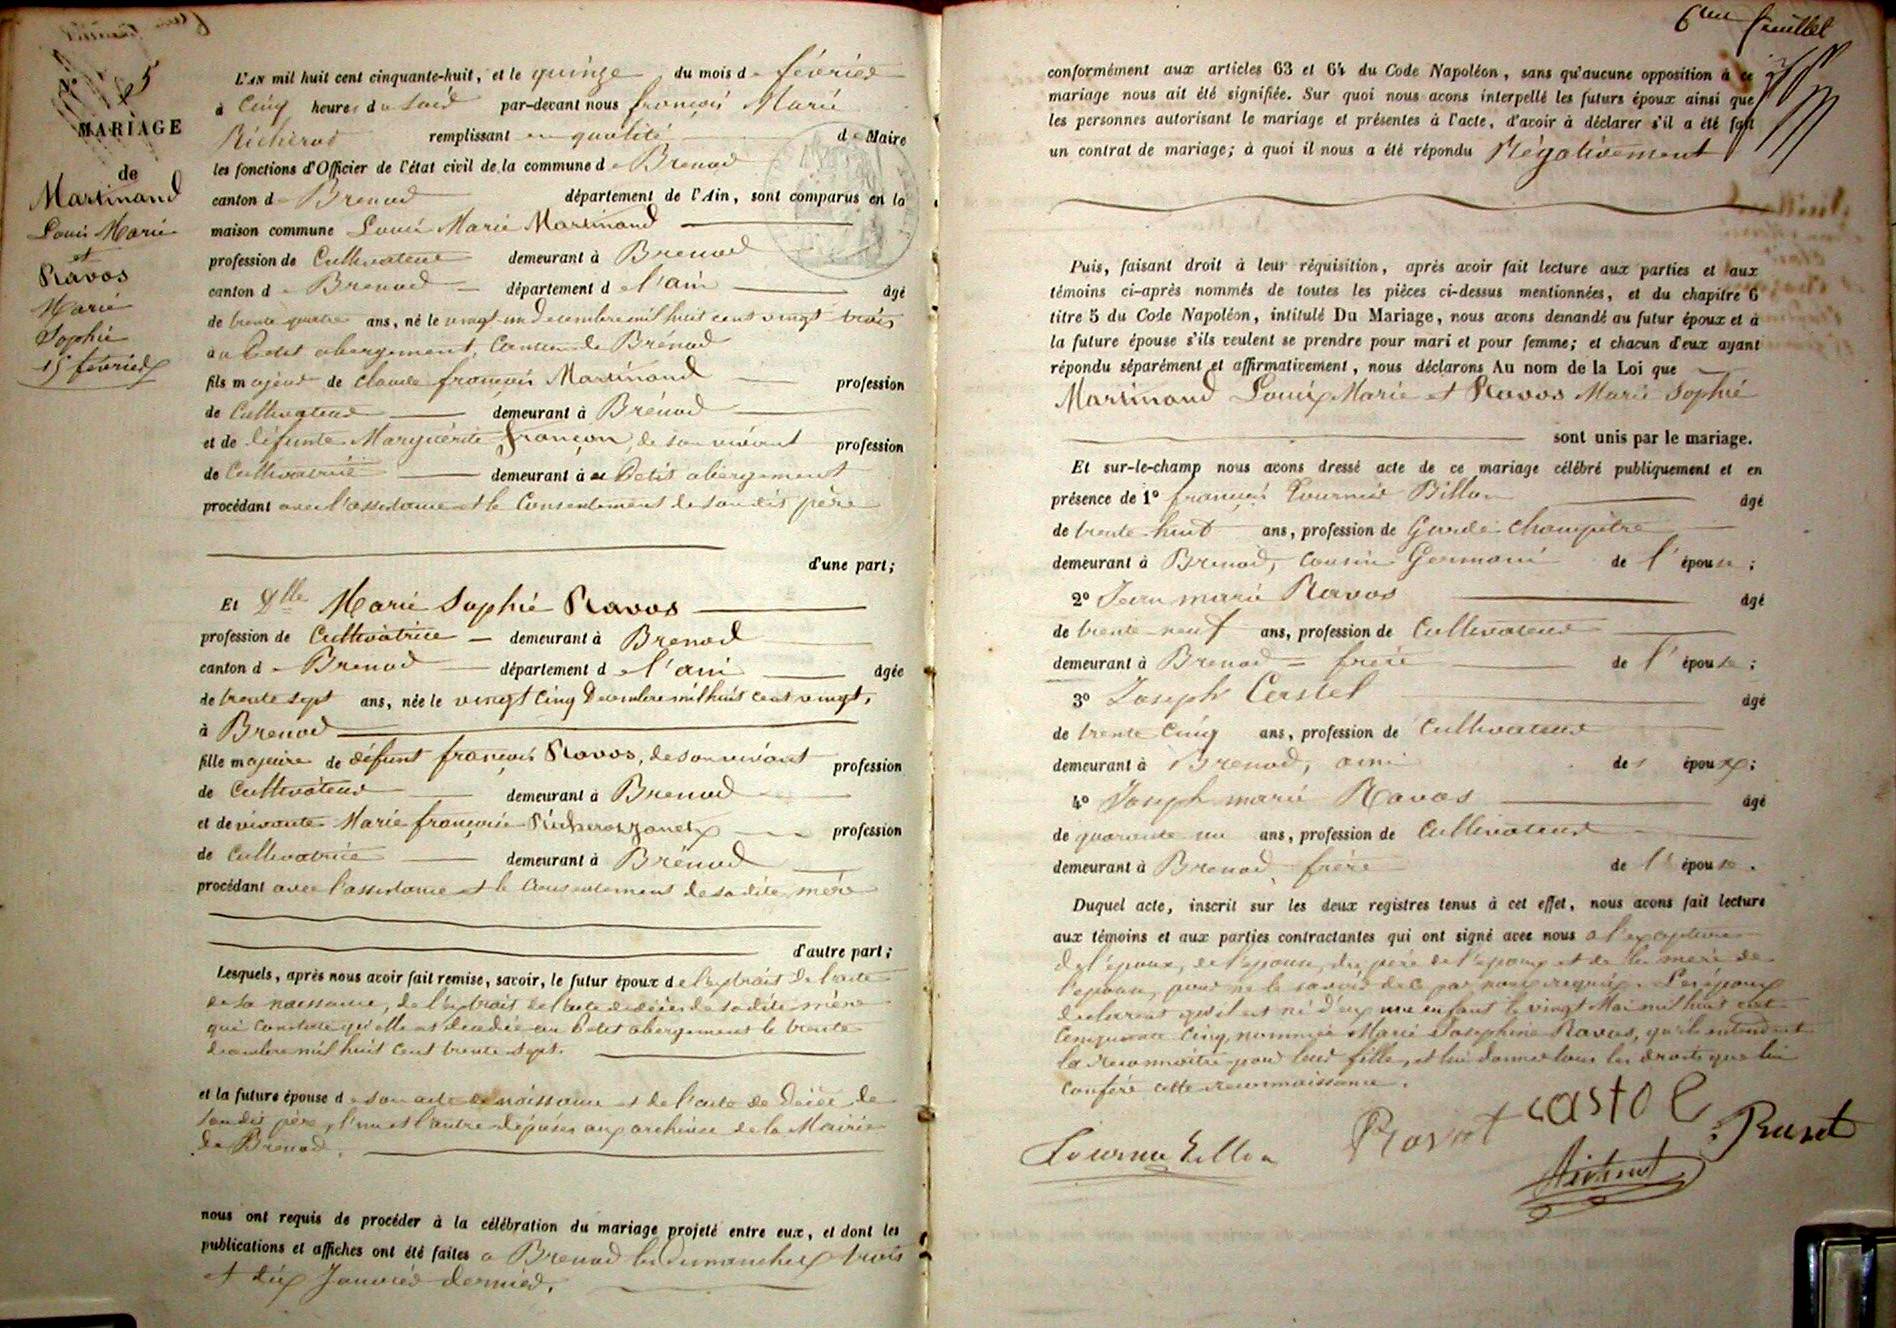 N° 5
MARIAGE
de
Martinand
Louis Marie
et
Ravos
Marie
Sophie
15 février
L'AN mil huit cent cinquante-huit, et le quinze du mois de février
à cinq heures du soir par-devant nous françois Marie
Richerod remplissant en qualité de Maire
les fonctions d'Officier de l'état civil de la commune de Brenod
canton de Brenod département de l'Ain, sont comparus en la
maison commune Louis Marie Martinand
profession de Cultivateur demeurant à Brenod
canton de Brenod département de l'ain âgé
de trente quatre ans, né le vingt un Decembre mil huit cent vingt trois
au Petit abergement, Canton de Brénod
fils majeur de claude françois Martinand profession
de Cultivateur demeurant à Brénod
et de défunte Marguerite françon, de son vivant profession
de Cultivatrice demeurant à au Petit abergement
procédant avec l'assistance et le Consentement de son dit père
d'une part;
Et Dlle Marie Sophie Ravos
profession de Cultivatrice demeurant à Brenod
canton de Brenod département de l'ain âgée
de trente sept ans, née le vingt cinq Decembre mil huit cent vingt,
à Brenod
fille majeure de défunt françois Ravos, de son vivant profession
de Cultivateur demeurant à Brenod
et de vivante Marie françoise profession
de Cultivatrice demeurant à Brénod
procédant avec l'assistance et le Consentement de sa dite mère
d'autre part;
Lesquels, après nous avoir fait remise, savoir, le futur époux de l'extrait de l'acte
de sa naissance, de l'extrait de l'acte de décès de sa dite mère
qui constate qu'elle est décédée au Petit abergement le trente
décembre mil huit cent trente sept.
et la future épouse de son acte de naissance et de l'acte de décès de
son dit père, l'un et l'autre déposés aux archives de la Mairie
de Brenod.
nous ont requis de procéder à la célébration du mariage projeté entre eux, et dont les
publications et affiches ont été faites à Brenod les dimanches trois
et dix Janvier dernier.
6eme feuillet
conformément aux articles 63 et 64 du Code Napoléon, sans qu'aucune opposition à ce
mariage nous ait été signifiée. Sur quoi nous avons interpellé les futurs époux ainsi que
les personnes autorisant le mariage et présentes à l'acte, d'avoir à déclarer s'il a été fait
un contrat de mariage; à quoi il nous a été répondu Négativement
Puis, faisant droit à leur réquisition, après avoir fait lecture aux parties et aux
témoins ci-après nommés de toutes les pièces ci-dessus mentionnées, et du chapitre 6
titre 5 du Code Napoléon, intitulé Du Mariage, nous avons demandé au futur époux et à
la future épouse s'ils veulent se prendre pour mari et pour femme; et chacun d'eux ayant
répondu séparément et affirmativement, nous déclarons Au nom de la Loi que
Martinand Louis Marie et Ravos Marie Sophie
sont unis par le mariage.
Et sur-le-champ nous avons dressé acte de ce mariage célébré publiquement et en
présence de 1° françois Tournier Billon âgé
de trente huit ans, profession de Garde Champêtre
demeurant à Brenod, cousin Germain de l'épouse;
2° Jean marie Ravos âgé
de trente neuf ans, profession de Cultivateur
demeurant à Brenod frère de l'épouse;
3° Joseph Castel âgé
de trente cinq ans, profession de Cultivateur
demeurant à Brenod, ami des époux;
4° Joseph marie Ravos âgé
de quarante un ans, profession de Cultivateur
demeurant à Brenod frère de l'épouse.
Duquel acte, inscrit sur les deux registres tenus à cet effet, nous avons fait lecture
aux témoins et aux parties contractantes qui ont signé avec nous a l'exception
de l'époux, de l'epouse, du père de l'epoux et de la mère de
l'epouse, pour ne le savoir de ce par nous requis. Les époux
declarent qu'il est né d'eux une enfant le vingt Mai mil huit cent
cinquante cinq, nommée Marie Josephine Ravos, qu'ils entendent
la reconnaitre pour leur fille, et lui donner tous les droits que lui
confère cette reconnaissance.
castel